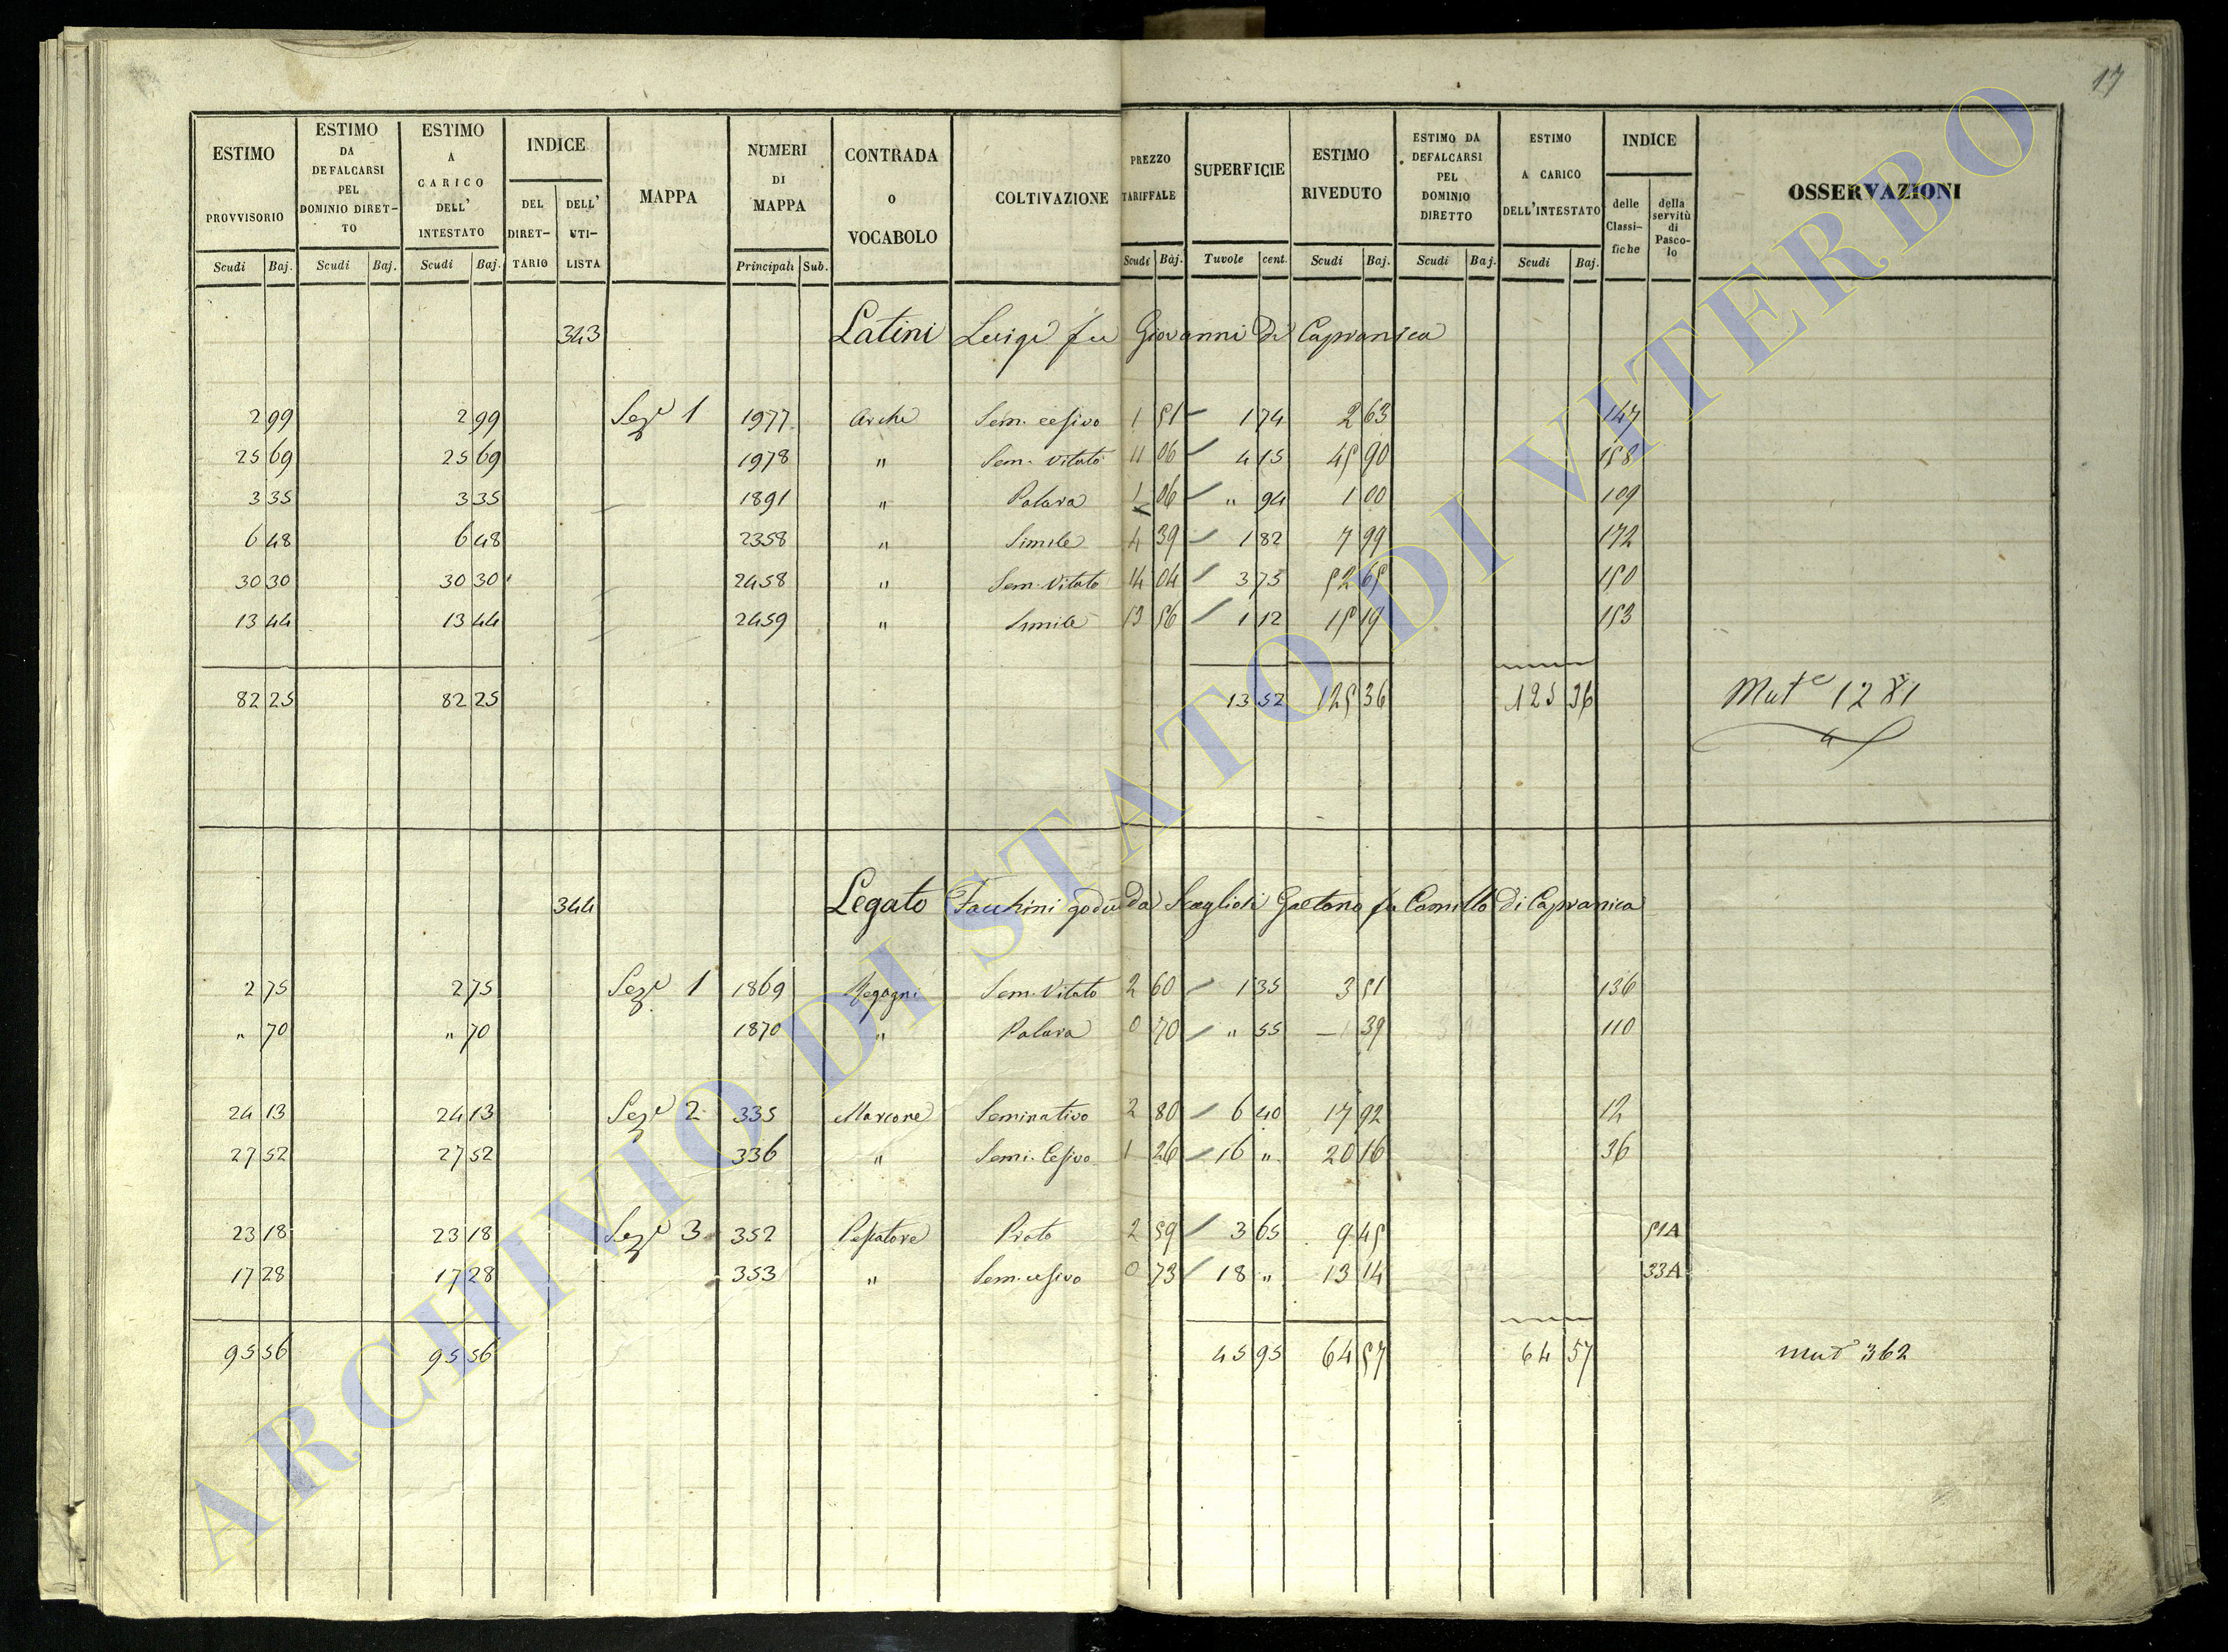 17
ESTIMO PROVVISORIO Scudi Baj.
ESTIMO DA DEFALCARSI PEL DOMINIO DIRET-TO Scudi Baj.
ESTIMO A CARICO DELL' INTESTATO Scudi Baj.
INDICE DEL DIRET-TARIO DELL' UTI-LISTA
MAPPA
NUMERI DI MAPPA Principali Sub.
CONTRADA o VOCABOLO
COLTIVAZIONE
PREZZO TARIFFALE Scudi Baj.
SUPERFICIE Tuvole cent.
ESTIMO RIVEDUTO Scudi Baj.
ESTIMO DA DEFALCARSI PEL DOMINIO DIRETTO Scudi Baj.
ESTIMO A CARICO DELL'INTESTATO Scudi Baj.
INDICE delle Classi-fiche della servitù di Pasco-lo
OSSERVAZIONI
343 Latini Luigi fu Giovanni di Capranica
2 99 2 99 Sezᵉ 1 1977 Arche Sem. cesivo 1 51 1 74 2 63 147
25 69 25 69 1978 " Sem. Vitato 11 06 4 15 45 90 158
3 35 3 35 1891 " Palara 1 06 " 94 1 00 109
6 48 6 48 2358 " Simile 4 39 1 82 7 99 172
30 30 30 30 2458 " Sem. Vitato 14 04 3 75 52 65 150
13 44 13 44 2459 " Simile 13 56 1 12 15 19 153
82 25 82 25 13 52 125 36 125 36 Mutᵉ 1281
344 Legato Facchini godu da Scaglioli Gaetano fu Camillo di Capranica
2 75 2 75 Sezᵉ 1 1869 Sem. Vitato 2 60 1 35 3 51 136
" 70 " 70 1870 " Palara 0 70 " 55 — 39 110
24 13 24 13 Sezᵉ 2 335 Marcone Seminativo 2 80 6 40 17 92 12
27 52 27 52 336 " Semi. Cesivo 1 26 16 " 20 16 36
23 18 23 18 Sezᵉ 3 352 Pesatore Prato 2 59 3 65 9 45 51A
17 28 17 28 353 " Sem. cesivo 0 73 18 " 13 14 33A
95 56 95 56 45 95 64 57 64 57 mutᵉ 362
ARCHIVIO DI STATO DI VITERBO